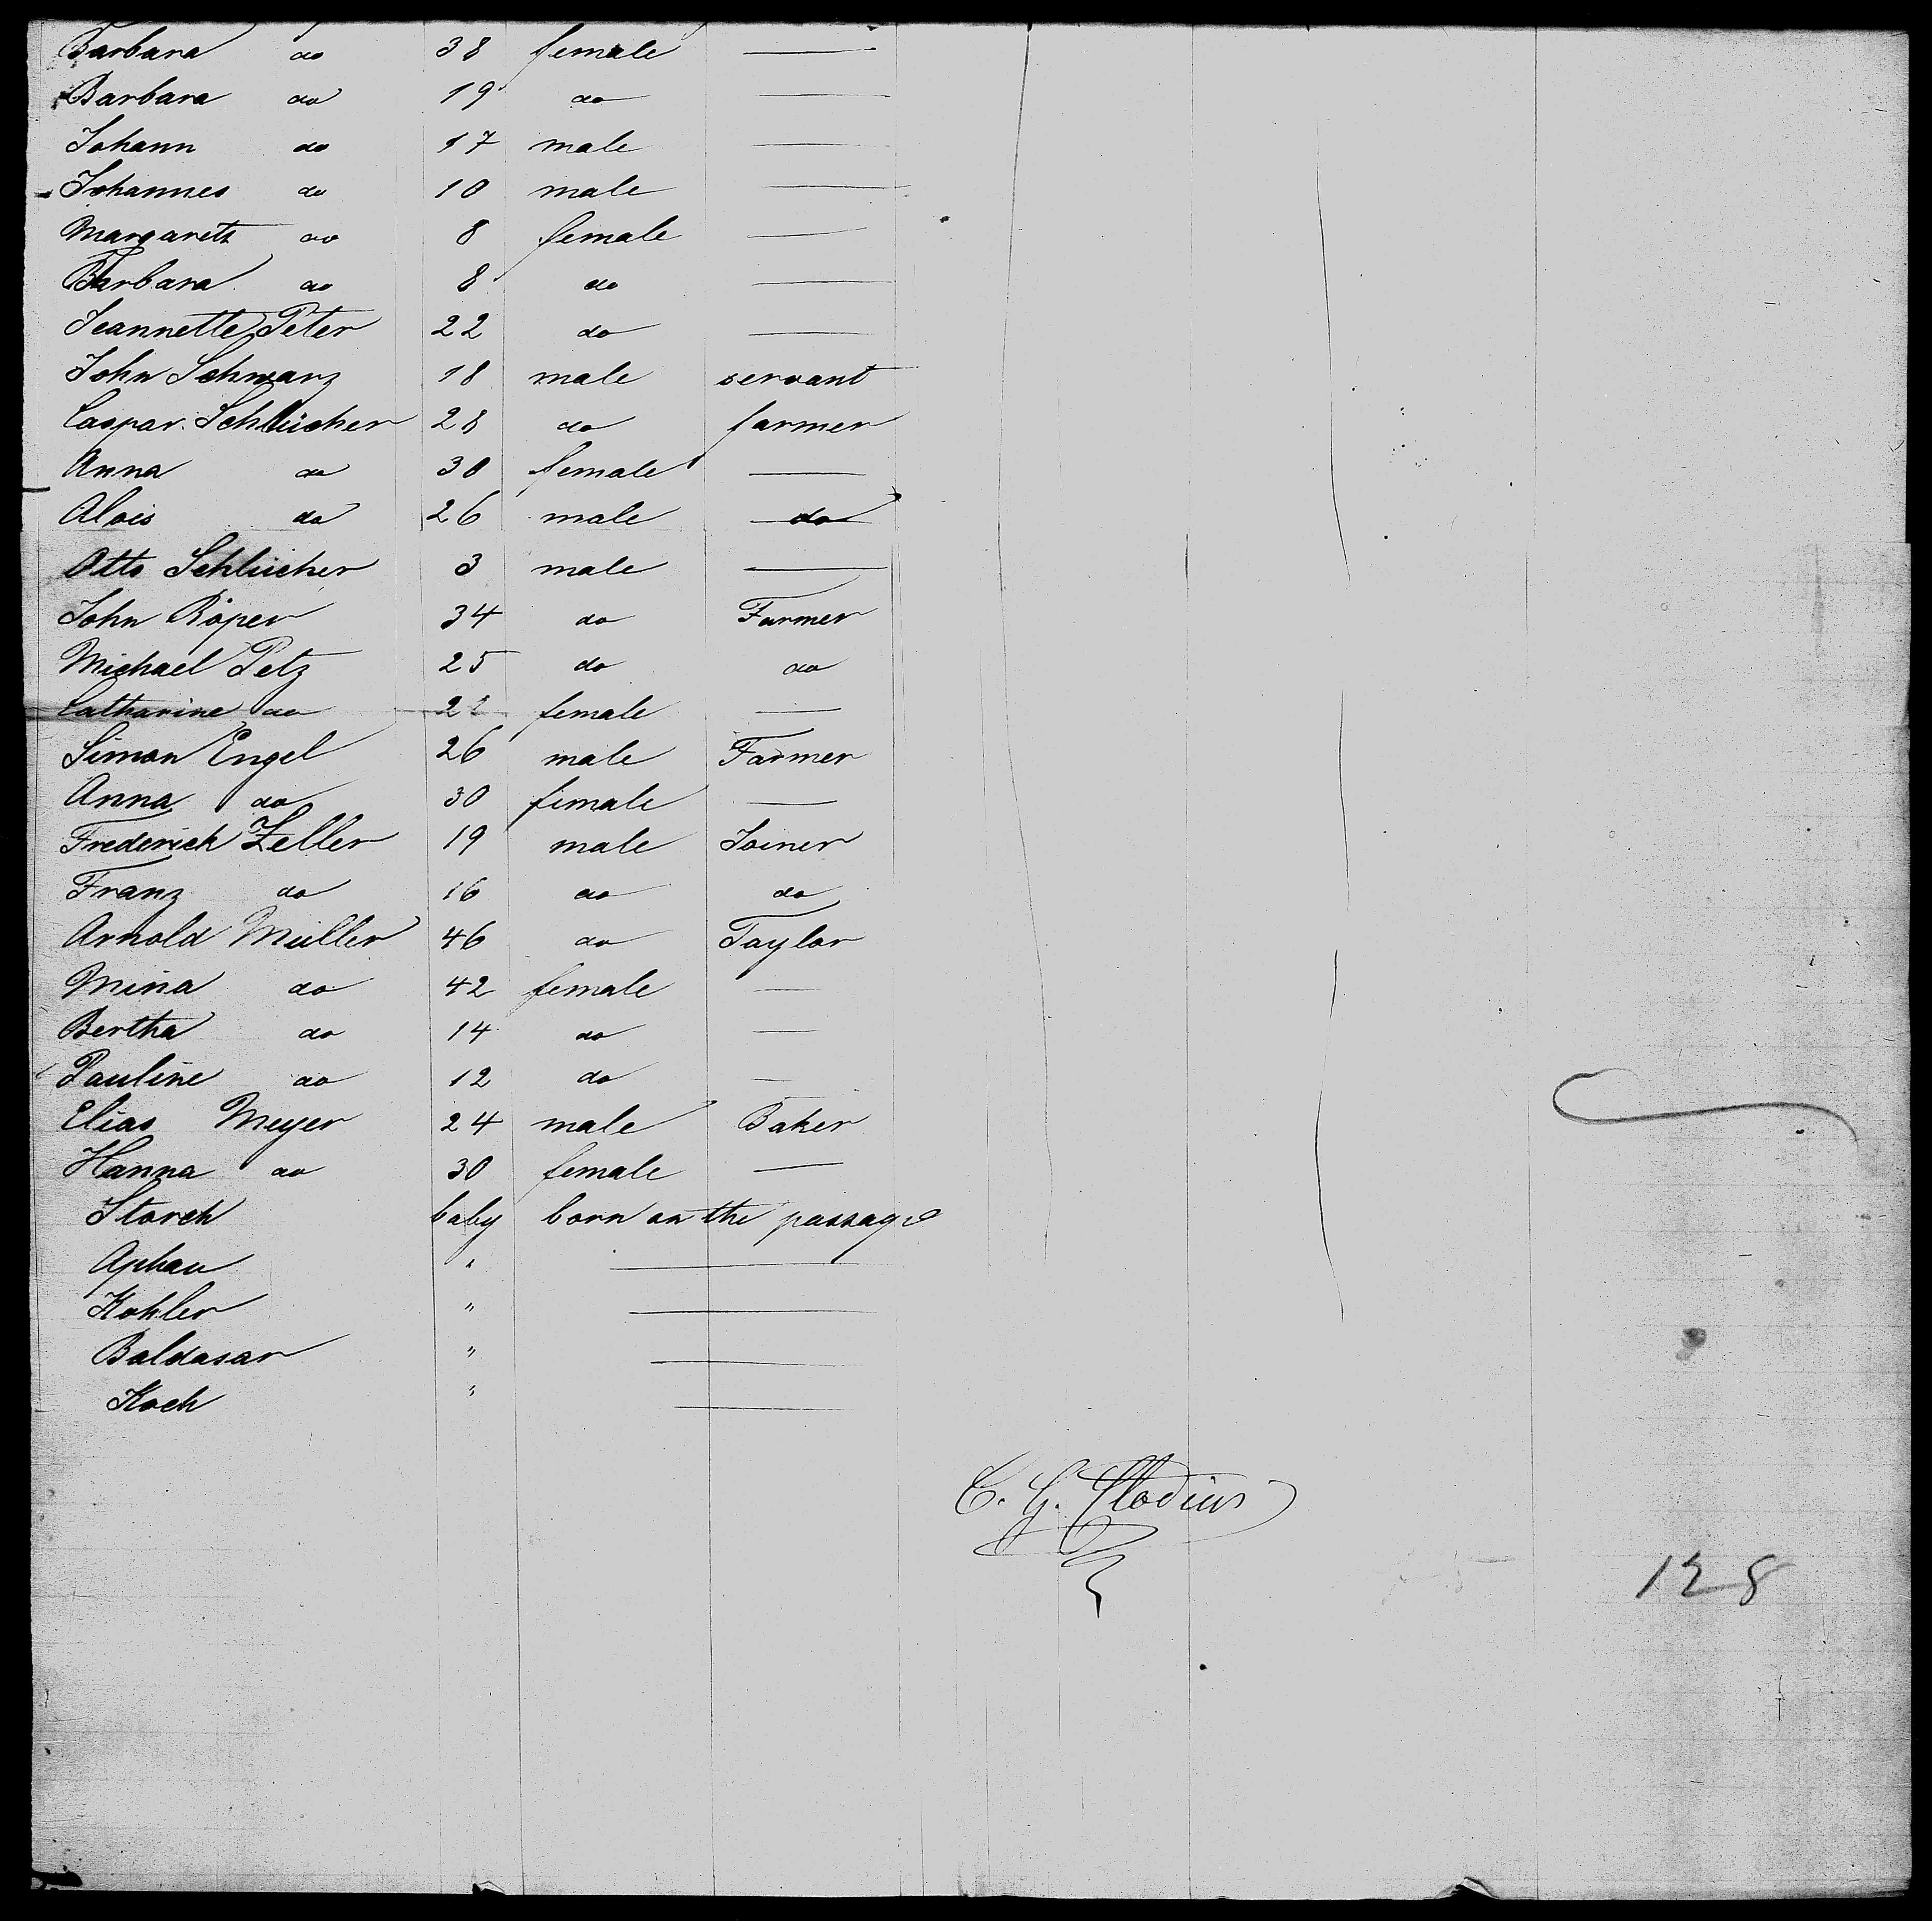 Barbara do 38 female —
Barbara do 19 do —
Johann do 17 male —
Johannes do 10 male —
Margareth do 8 female —
Barbara do 8 do —
Jeannette Peter 22 do —
John Schwarz 18 male servant
Caspar Schlücher 28 do farmer
Anna do 30 female —
Alois do 26 male do
Otto Schlücher 3 male —
John Röper 34 do Farmer
Michael Petz 25 do do
Catharine do female —
Simon Engel 26 male Farmer
Anna do 30 female —
Frederick Zeller 19 male Joiner
Franz do 16 do do
Arnold Müller 46 do Taylor
Mina do 42 female —
Bertha do 14 do —
Pauline do 12 do —
Elias Meyer 24 male Baker
Hanna do 30 female —
Storch baby born on the passage
Aphau " —
Kohler " —
Baldasar " —
Koch " —
C. G. Clodius
128